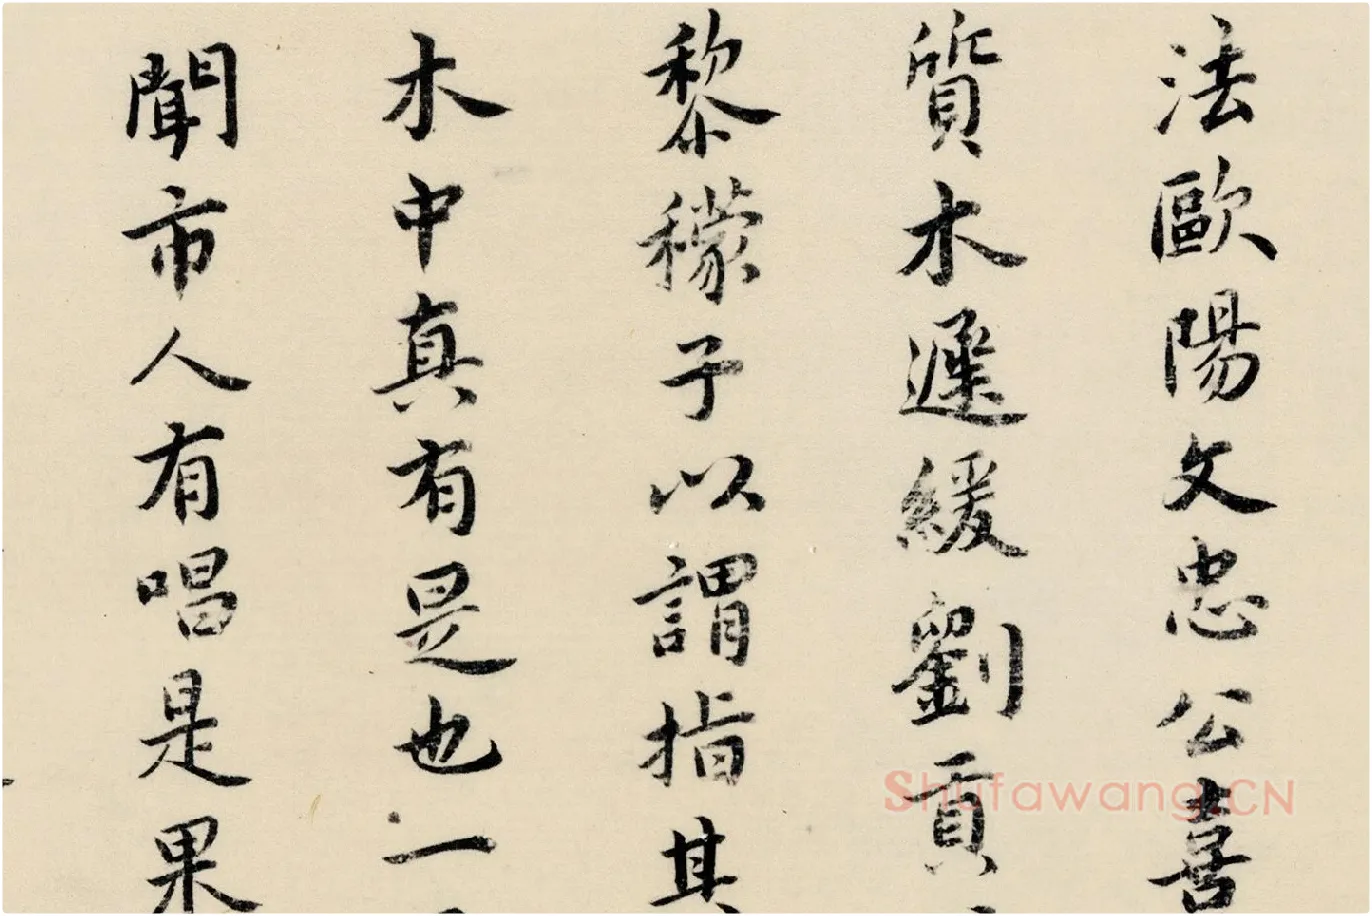 法歐陽文忠公喜
質木遲緩劉貢
黎檬子以謂指其
木中真有是也一
聞市人有唱是果
Shufawang.CN